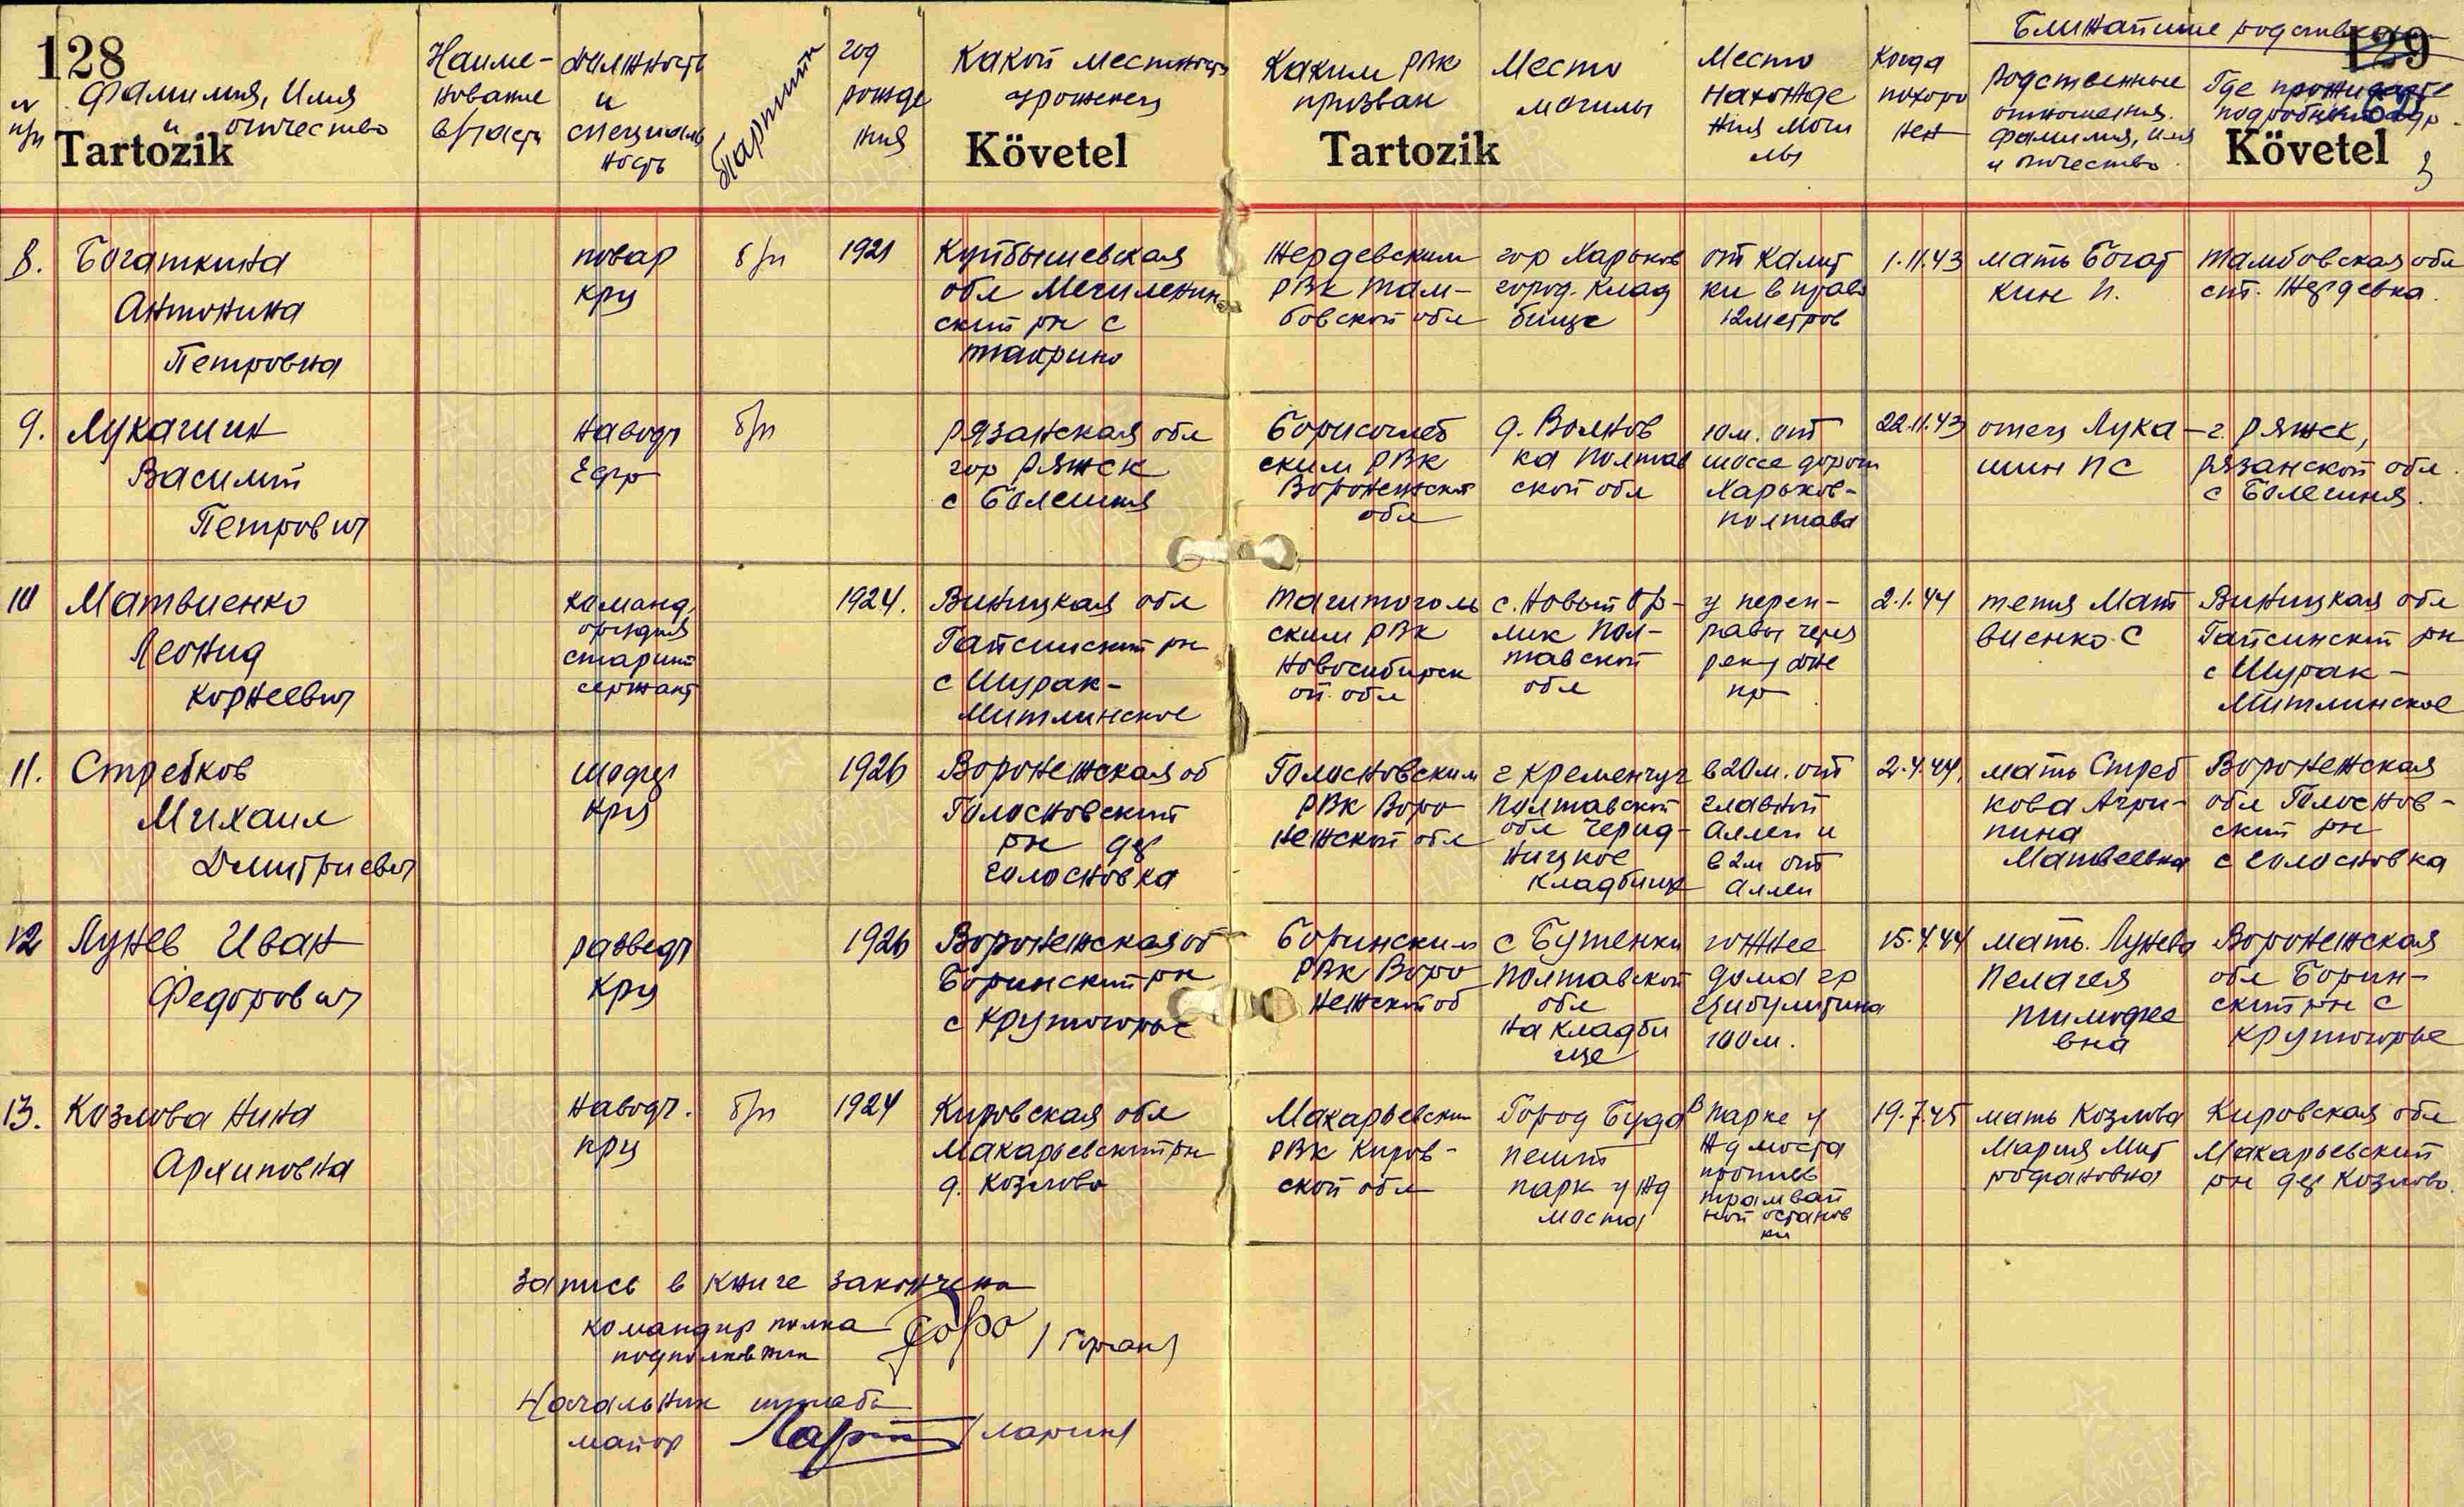 128
129
62
Ближайшие родственники
N п/п
Фамилия, Имя
и отчество
Наиме-
нование
в/части
должность
и
специаль
ность
Партийн
год
рожде
ния
Какой местности
уроженец
Каким РВК
призван
Место
могилы
Место
нахожде
ния моги
лы
Когда
похоро
нен
Родственные
отношения.
Фамилия, Имя
и отчество.
Где проживает
подробный адр.
Tartozik
Követel
Tartozik
Követel
3
8.
Богаткина
Антонина
Петровна
повар
кр-ц
б/п
1921
Куйбышевская
обл
ский рн с
Жердевским
РВК Там-
бовской обл
гор Харьков
город. клад
бище
от калит
ки в право
12 метров
1.11.43
мать Богат
кин П.
Тамбовская обл
ст. Жердевка.
9.
Лукашин
Василий
Петрович
наводч
Ефр
б/п
Рязанская обл
гор Ряжск
с Болешня
Борисоглеб
ским РВК
Воронежской
обл
д. Волнов
ка Полтав
ской обл
10 м. от
шоссе дороги
Харьков-
Полтава
22.11.43
отец Лука-
шин П С
г. Ряжск,
Рязанской обл.
с Болешня.
10
Матвиенко
Леонид
Корнеевич
команд.
орудия
старший
сержант
1924.
Виницкая обл
Гайсинский рн
с Шурак-
Митлинское
ским РВК
Новосибирск
ой обл
с. Новый Ор-
лик Пол-
тавской
обл
у переп-
равы через
реку Дне
пр
2.1.44
Мат
виенко С
Виницкая обл
Гайсинский рн
с Шурак-
Митлинское
11.
Стребков
Михаил
Дмитриевич
шофер
кр-ц
1926
Воронежская об
Голосновский
рн дер
Голосновка
Голосновским
РВК Воро
нежской обл
г Кременчуг
Полтавской
обл
кладбище
в 20 м. от
главной
аллеи и
в 2 м от
аллеи
2.4.44.
мать Стреб
кова Агри-
пина
Матвеевна
Воронежская
обл Голоснов-
ский рн
с Голосновка
12
Лунев Иван
Федорович
разведч
кр-ц
1926
Воронежская об
Боринский рн
с Крутогорье
Боринским
РВК Воро
нежской об
с Бутенки
Полтавской
обл
на кладби
ще
южнее
дома гр
100 м.
15.4.44
мать. Лунева
Пелагея
Тимофее
вна
Воронежская
обл Борин-
ский рн с
Крутогорье
13.
Козлова Нина
Архиповна
наводч.
кр-ц
б/п
1924
Кировская обл
Макарьевский рн
д. Козлово
Макарьевским
РВК Киров-
ской обл
Город Буда
пешт
парк у жд
моста
в парке у
жд моста
против
трамвай
ной останов
ки
19.7.45
мать Козлова
Мария Мит
рофановна
Кировская обл
Макарьевский
рн дер Козлово.
Запись в книге закончена
командир полка
подполковник
Начальник штаба
майор
/Ларин/